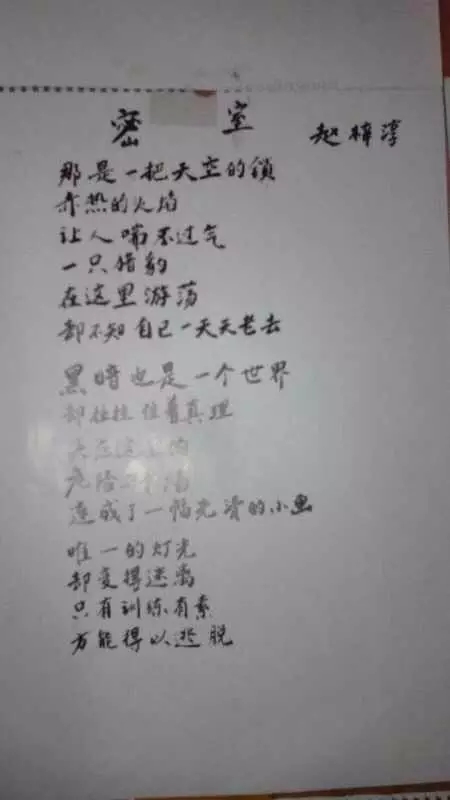 密室 赵梓淳
那是一把天空的锁
赤热的火焰
让人喘不过气
一只猎豹
在这里游荡
却不知自己一天天老去
黑暗也是一个世界
却拴住着真理
危险
连成了一幅光滑的小画
唯一的灯光
却变得迷离
只有训练有素
方能得以逃脱